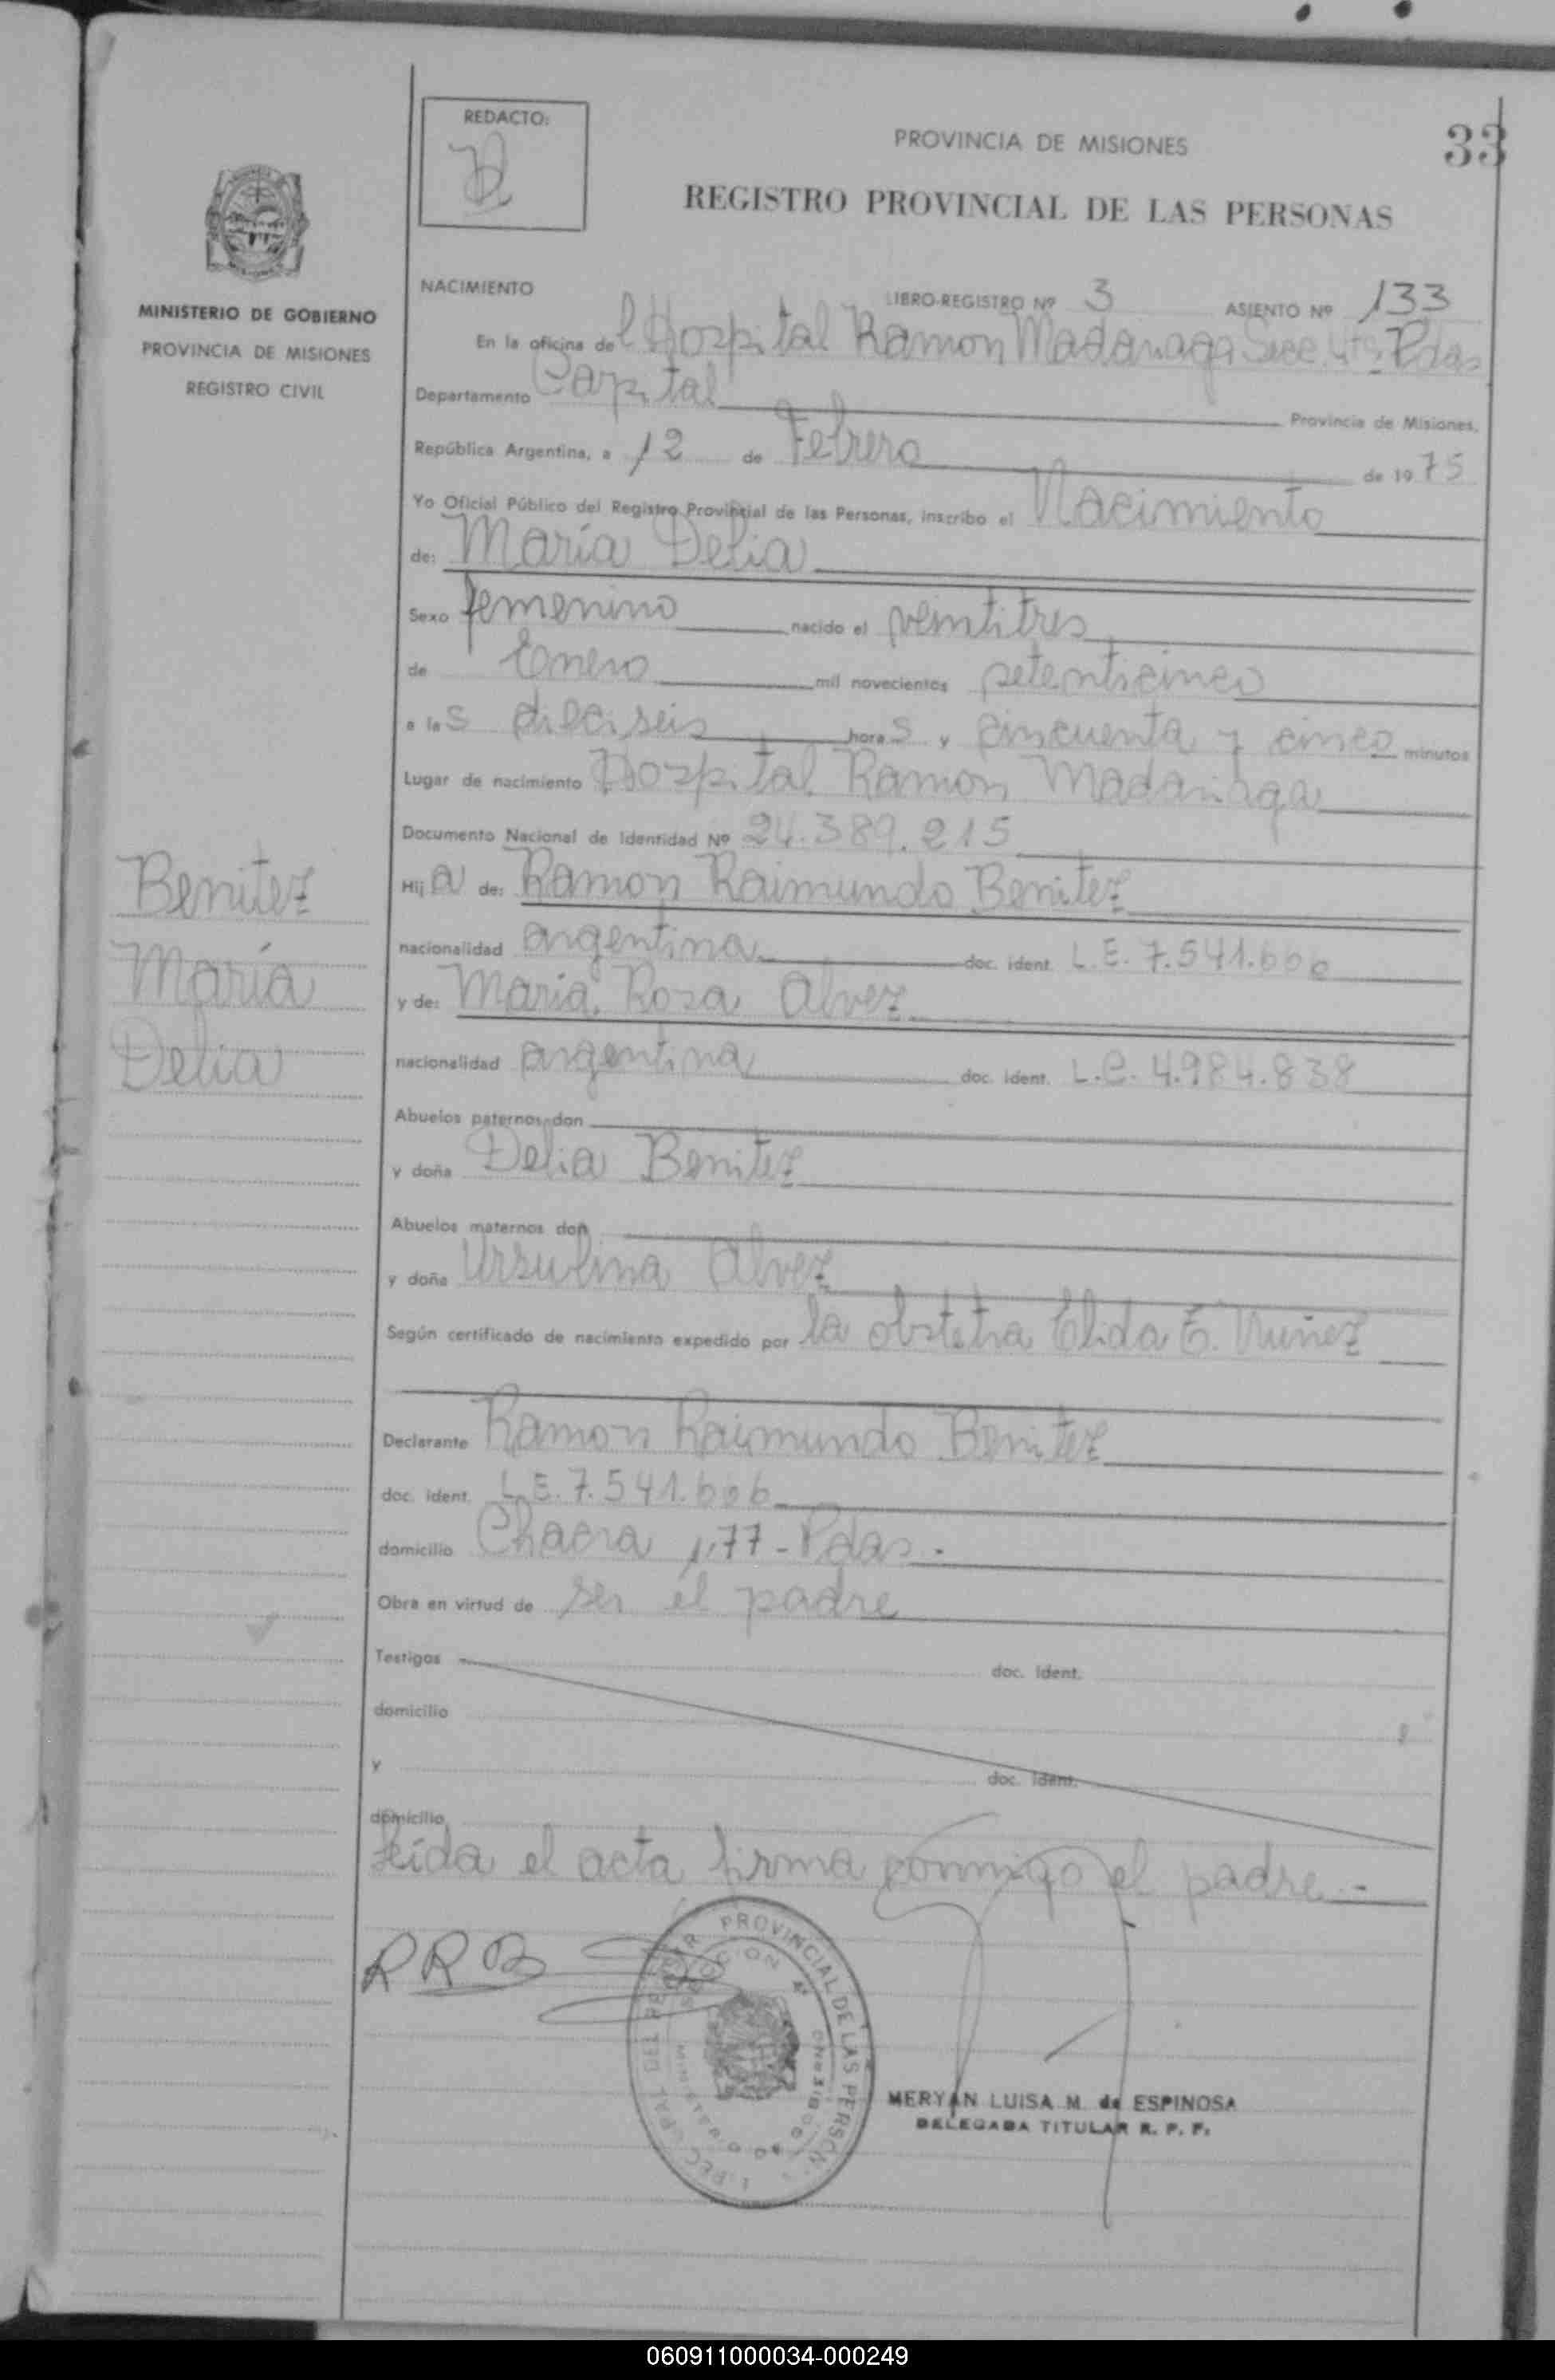 REDACTO:
PROVINCIA DE MISIONES
33
REGISTRO PROVINCIAL DE LAS PERSONAS
MINISTERIO DE GOBIERNO
PROVINCIA DE MISIONES
REGISTRO CIVIL
NACIMIENTO LIBRO-REGISTRO Nº 3 ASIENTO Nº 133
En la oficina del Hospital Ramon Madariaga Secc. 4ta Pdas
Departamento Capital Provincia de Misiones,
República Argentina, a 12 de Febrero de 1975
Yo Oficial Público del Registro Provincial de las Personas, inscribo el Nacimiento
de: María Delia
Sexo femenino nacido el veintitres
de Enero mil novecientos setenticinco
a las dieciseis horas y cincuenta y cinco minutos
Lugar de nacimiento Hospital Ramon Madariaga
Documento Nacional de Identidad Nº 24.389.215
Hija de: Ramon Raimundo Benitez
nacionalidad argentina doc. ident. L.E. 7.541.606
y de: Maria Rosa Alvez
nacionalidad argentina doc. ident. L.C. 4.984.838
Abuelos paternos don
y doña Delia Benitez
Abuelos maternos don
y doña Ursulina Alvez
Según certificado de nacimiento expedido por la obstetra Elida E. Nuñez
Declarante Ramon Raimundo Benitez
doc. ident. L.E. 7.541.606
domicilio Chacra 177 - Pdas.
Obra en virtud de ser el padre
Testigos doc. ident.
domicilio
y doc. ident.
domicilio
Leida el acta firma conmigo el padre.-
Benitez
María
Delia
RRB
PROVINCIAL DE LAS PERSON
SECCION 4ª
MERYAN LUISA M. de ESPINOSA
DELEGADA TITULAR R. P. P.
060911000034-000249